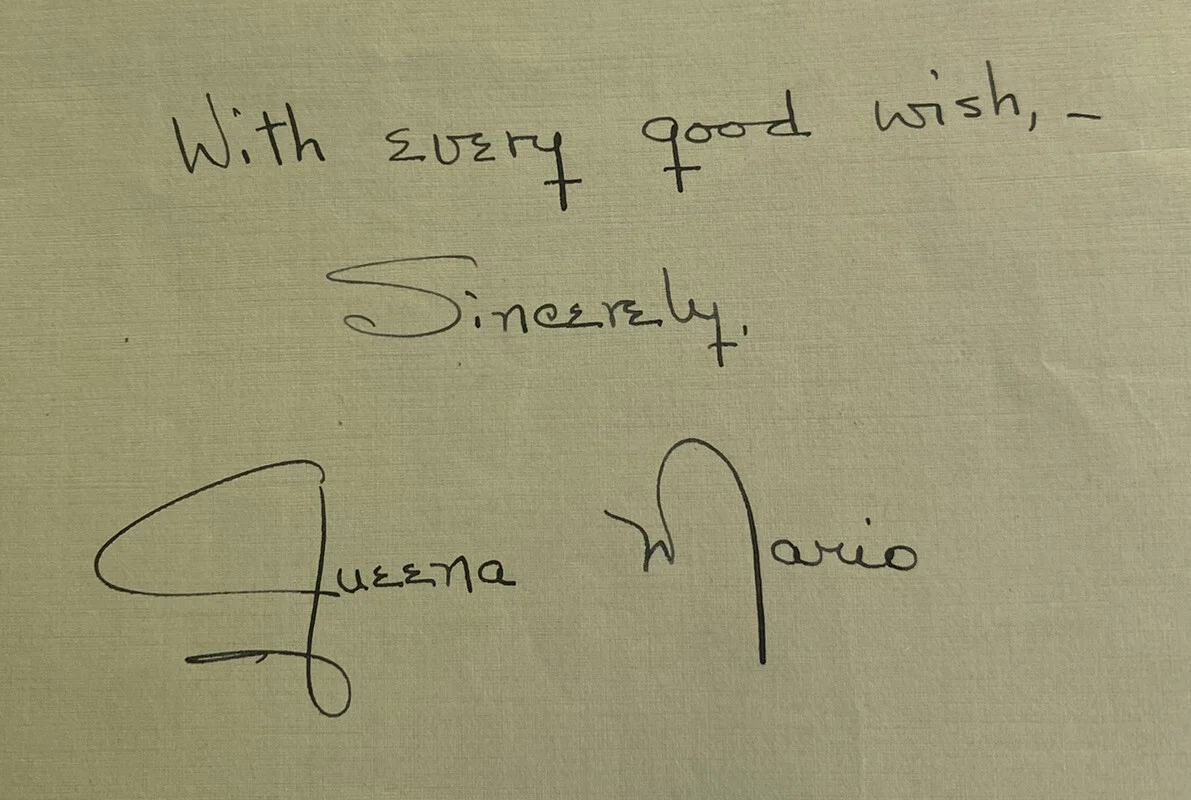 With every good wish, -
Sincerely.
Queena Mario